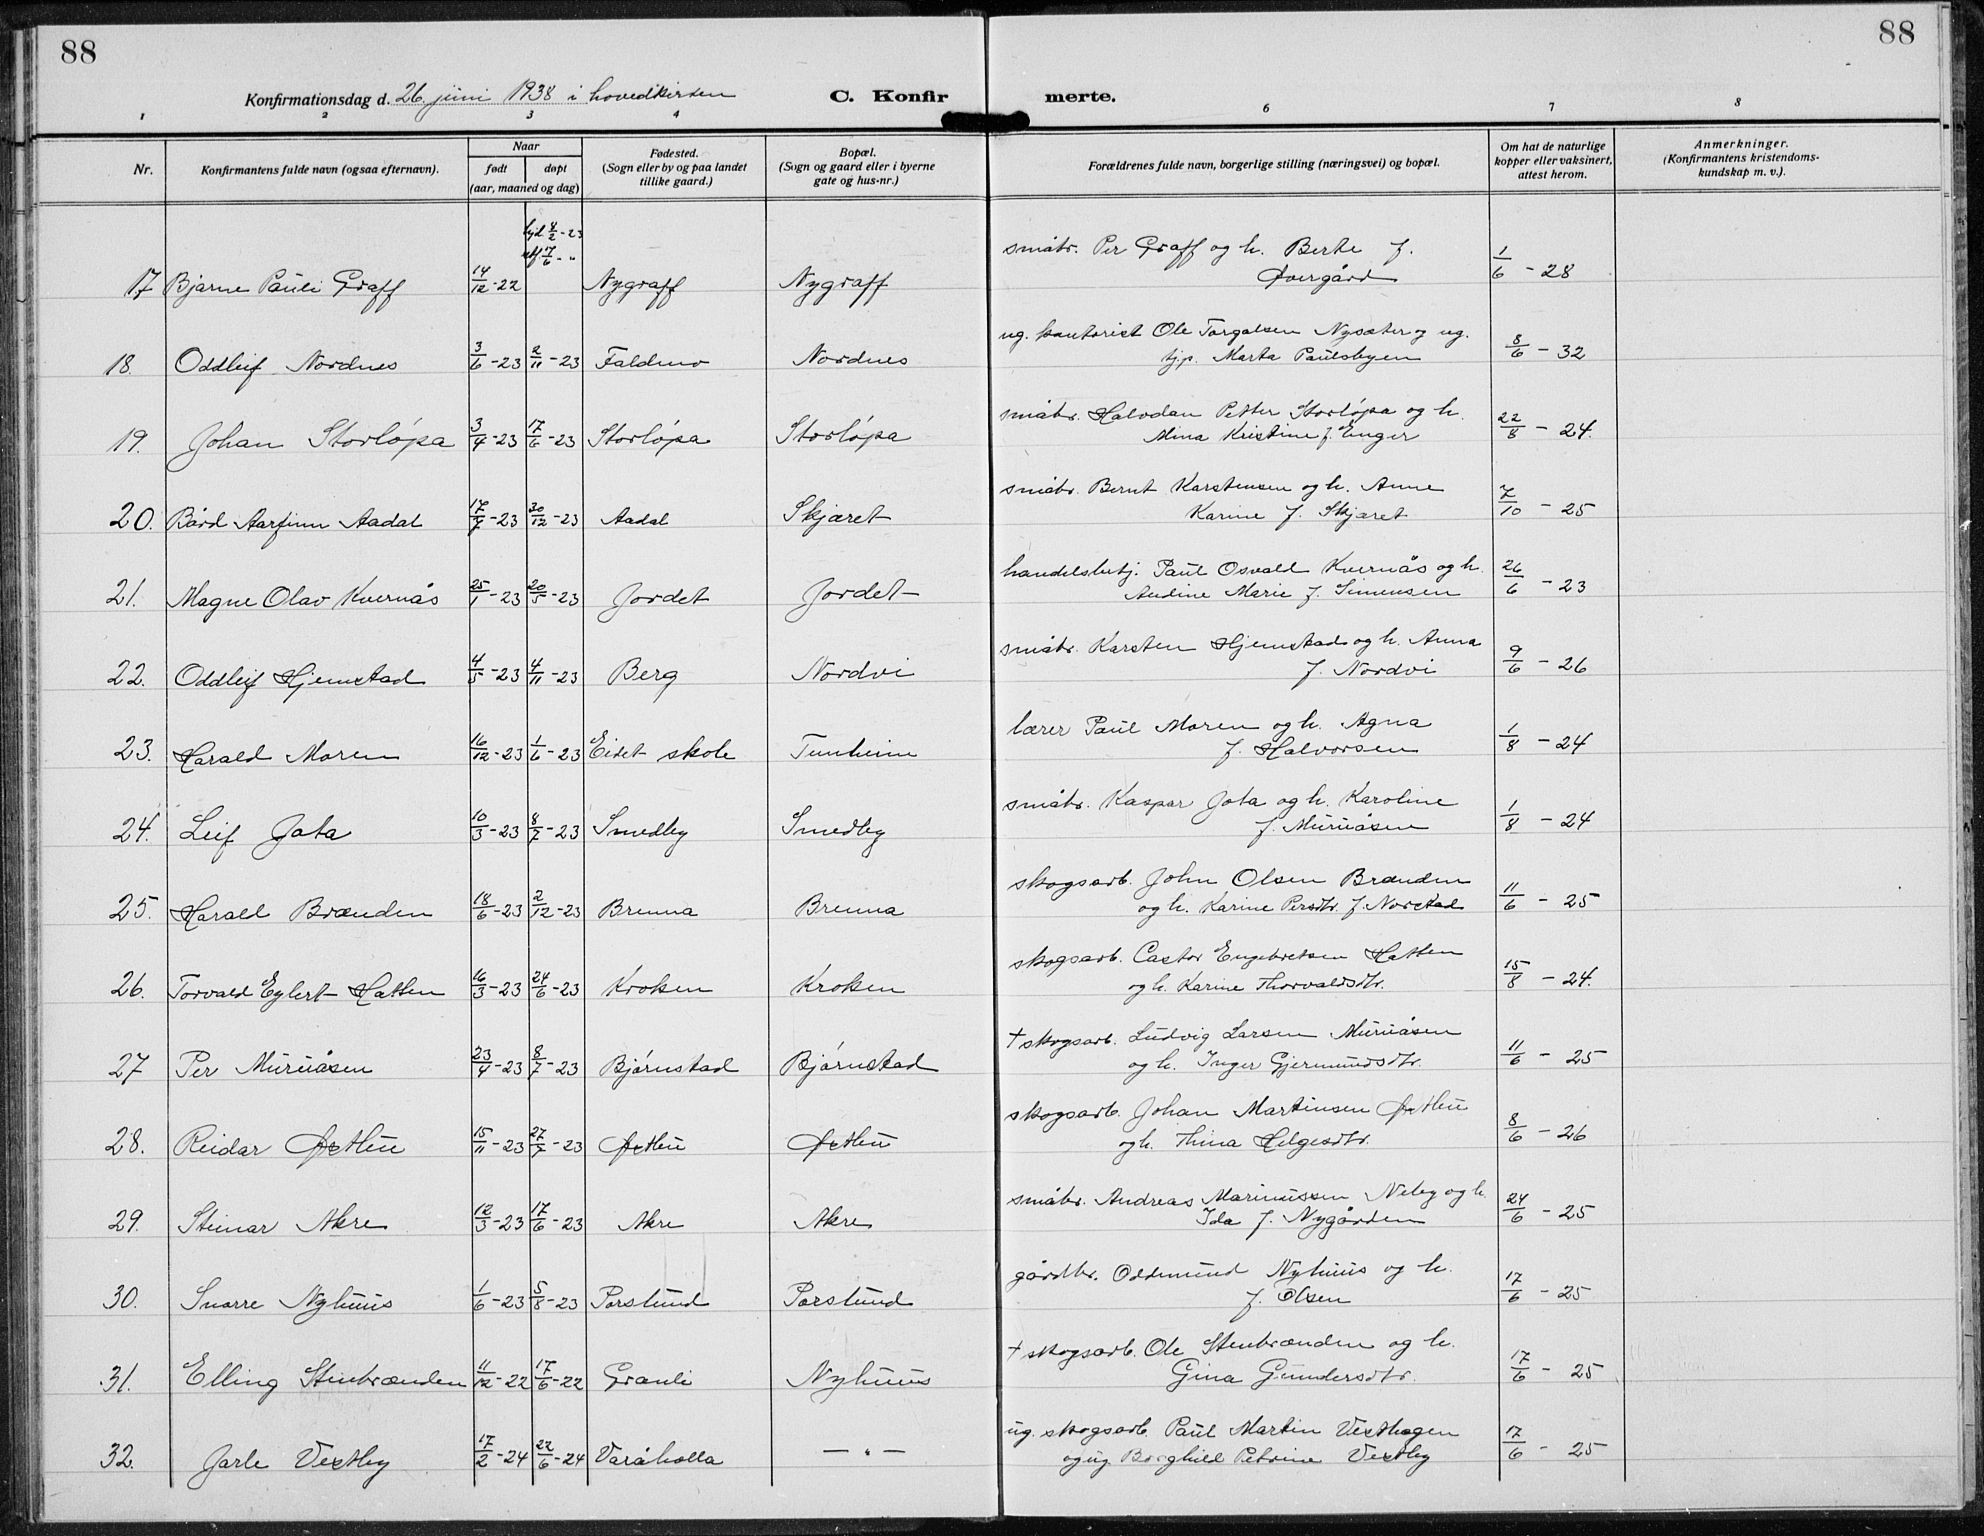 88
88
Konfirmationsdag d. 26 juni 1938 i hovedkirken
C. Konfirmerte.
1 2 3 4 5 6 7 8
Nr. Konfirmantens fulde navn (ogsaa efternavn). Naar født døpt (aar, maaned og dag) Fødested. (Sogn eller by og paa landet tillike gaard.) Bopæl. (Sogn og gaard eller i byerne gate og hus-nr.) Forældrenes fulde navn, borgerlige stilling (næringsvei) og bopæl. Om hat de naturlige kopper eller vaksinert, attest herom. Anmerkninger. (Konfirmantens kristendoms-kundskap m. v.).
17 Bjarne Pauli Graff 14/12-22 hjd 4/2-23 stf 17/6-" Nygraff Nygraff småbr. Per Graff og h. Berte f. Øvergård 1/6-28
18. Oddleif Nordnes 3/6-23 2/11-23 Faldmo Nordnes ug. kontorist Ole Torgalsen Nysæter og ug. tjp. Marta Paulsbyen 8/6-32
19. Johan Storløpa 3/4-23 17/6-23 Storløpa Storløpa småbr. Halvdan Petter Storløpa og h. Mina Kristine f. Enger 22/8-24.
20. Bård Aarfinn Aadal 17/7-23 30/12-23 Aadal Skjæret småbr. Bernt Karstensen og h. Anne Karine f. Skjæret 7/10-25
21. Magne Olav Kvernås 25/1-23 20/5-23 Jordet Jordet handelsbetj. Paul Osvald Kvernås og h. Andine Marie f. Simensen 26/6-23
22. Oddleif Hjemstad 4/5-23 4/11-23 Berg Nordvi småbr. Karsten Hjemstad og h. Anna f. Nordvi 9/6-26
23. Harald Moren 16/12-23 1/6-23 Eidet skole Tunheim lærer Paul Moren og h. Agna f. Halvorsen 1/8-24
24. Leif Jota 10/3-23 8/7-23 Smedby Smedby småbr. Kaspar Jota og h. Karoline f. Muruåsen 1/8-24
25. Harald Brænden 18/6-23 2/12-23 Brenna Brenna skogsarb. John Olsen Brænden og h. Karine Persdtr. f. Norstad 11/6-25
26. Torvald Eylert Hatten 16/3-23 24/6-23 Kroken Kroken skogsarb. Castor Engebretsen Hatten og h. Karine Thorvaldsdtr. 15/8-24.
27 Per Muruåsen 23/4-23 8/7-23 Bjørnstad Bjørnstad † skogsarb. Ludvig Larsen Muruåsen og h. Inger Gjermundsdtr. 11/6-25
28. Reidar Østhu 15/11-23 27/7-23 Østhu Østhu skogsarb. Johan Martinsen Østhu og h. Thina Helgesdtr. 8/6-26
29. Steinar Akre 12/3-23 17/6-23 Akre Akre småbr. Andreas Marinussen Neby og h. Ida f. Nygården 24/6-25
30. Snorre Nyhuus 1/6-23 5/8-23 Porslund Porslund gårdbr. Oddmund Nyhuus og h. f. Olsen 17/6-25
31. Elling Stenbrænden 11/12-22 17/6-22 Granli Nyhuus † skogsarb. Ole Stenbrænden og h. Gina Gundersdtr. 17/6-25
32. Jarle Vestby 17/2-24 22/6-24 Varåholla —"— ug. skogsarb. Paul Martin Vesthagen og ug Borghild Petrine Vestby 17/6-25